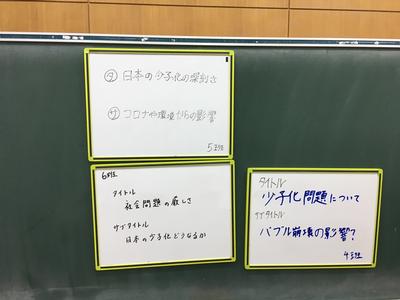 タ 日本の少子化の深刻さ
サ コロナや環境からの影響
5班
6班
タイトル
社会問題の厳しさ
サブタイトル
日本の少子化どうなるか
タイトル
少子化問題について
サブタイトル
バブル崩壊の影響?
4班